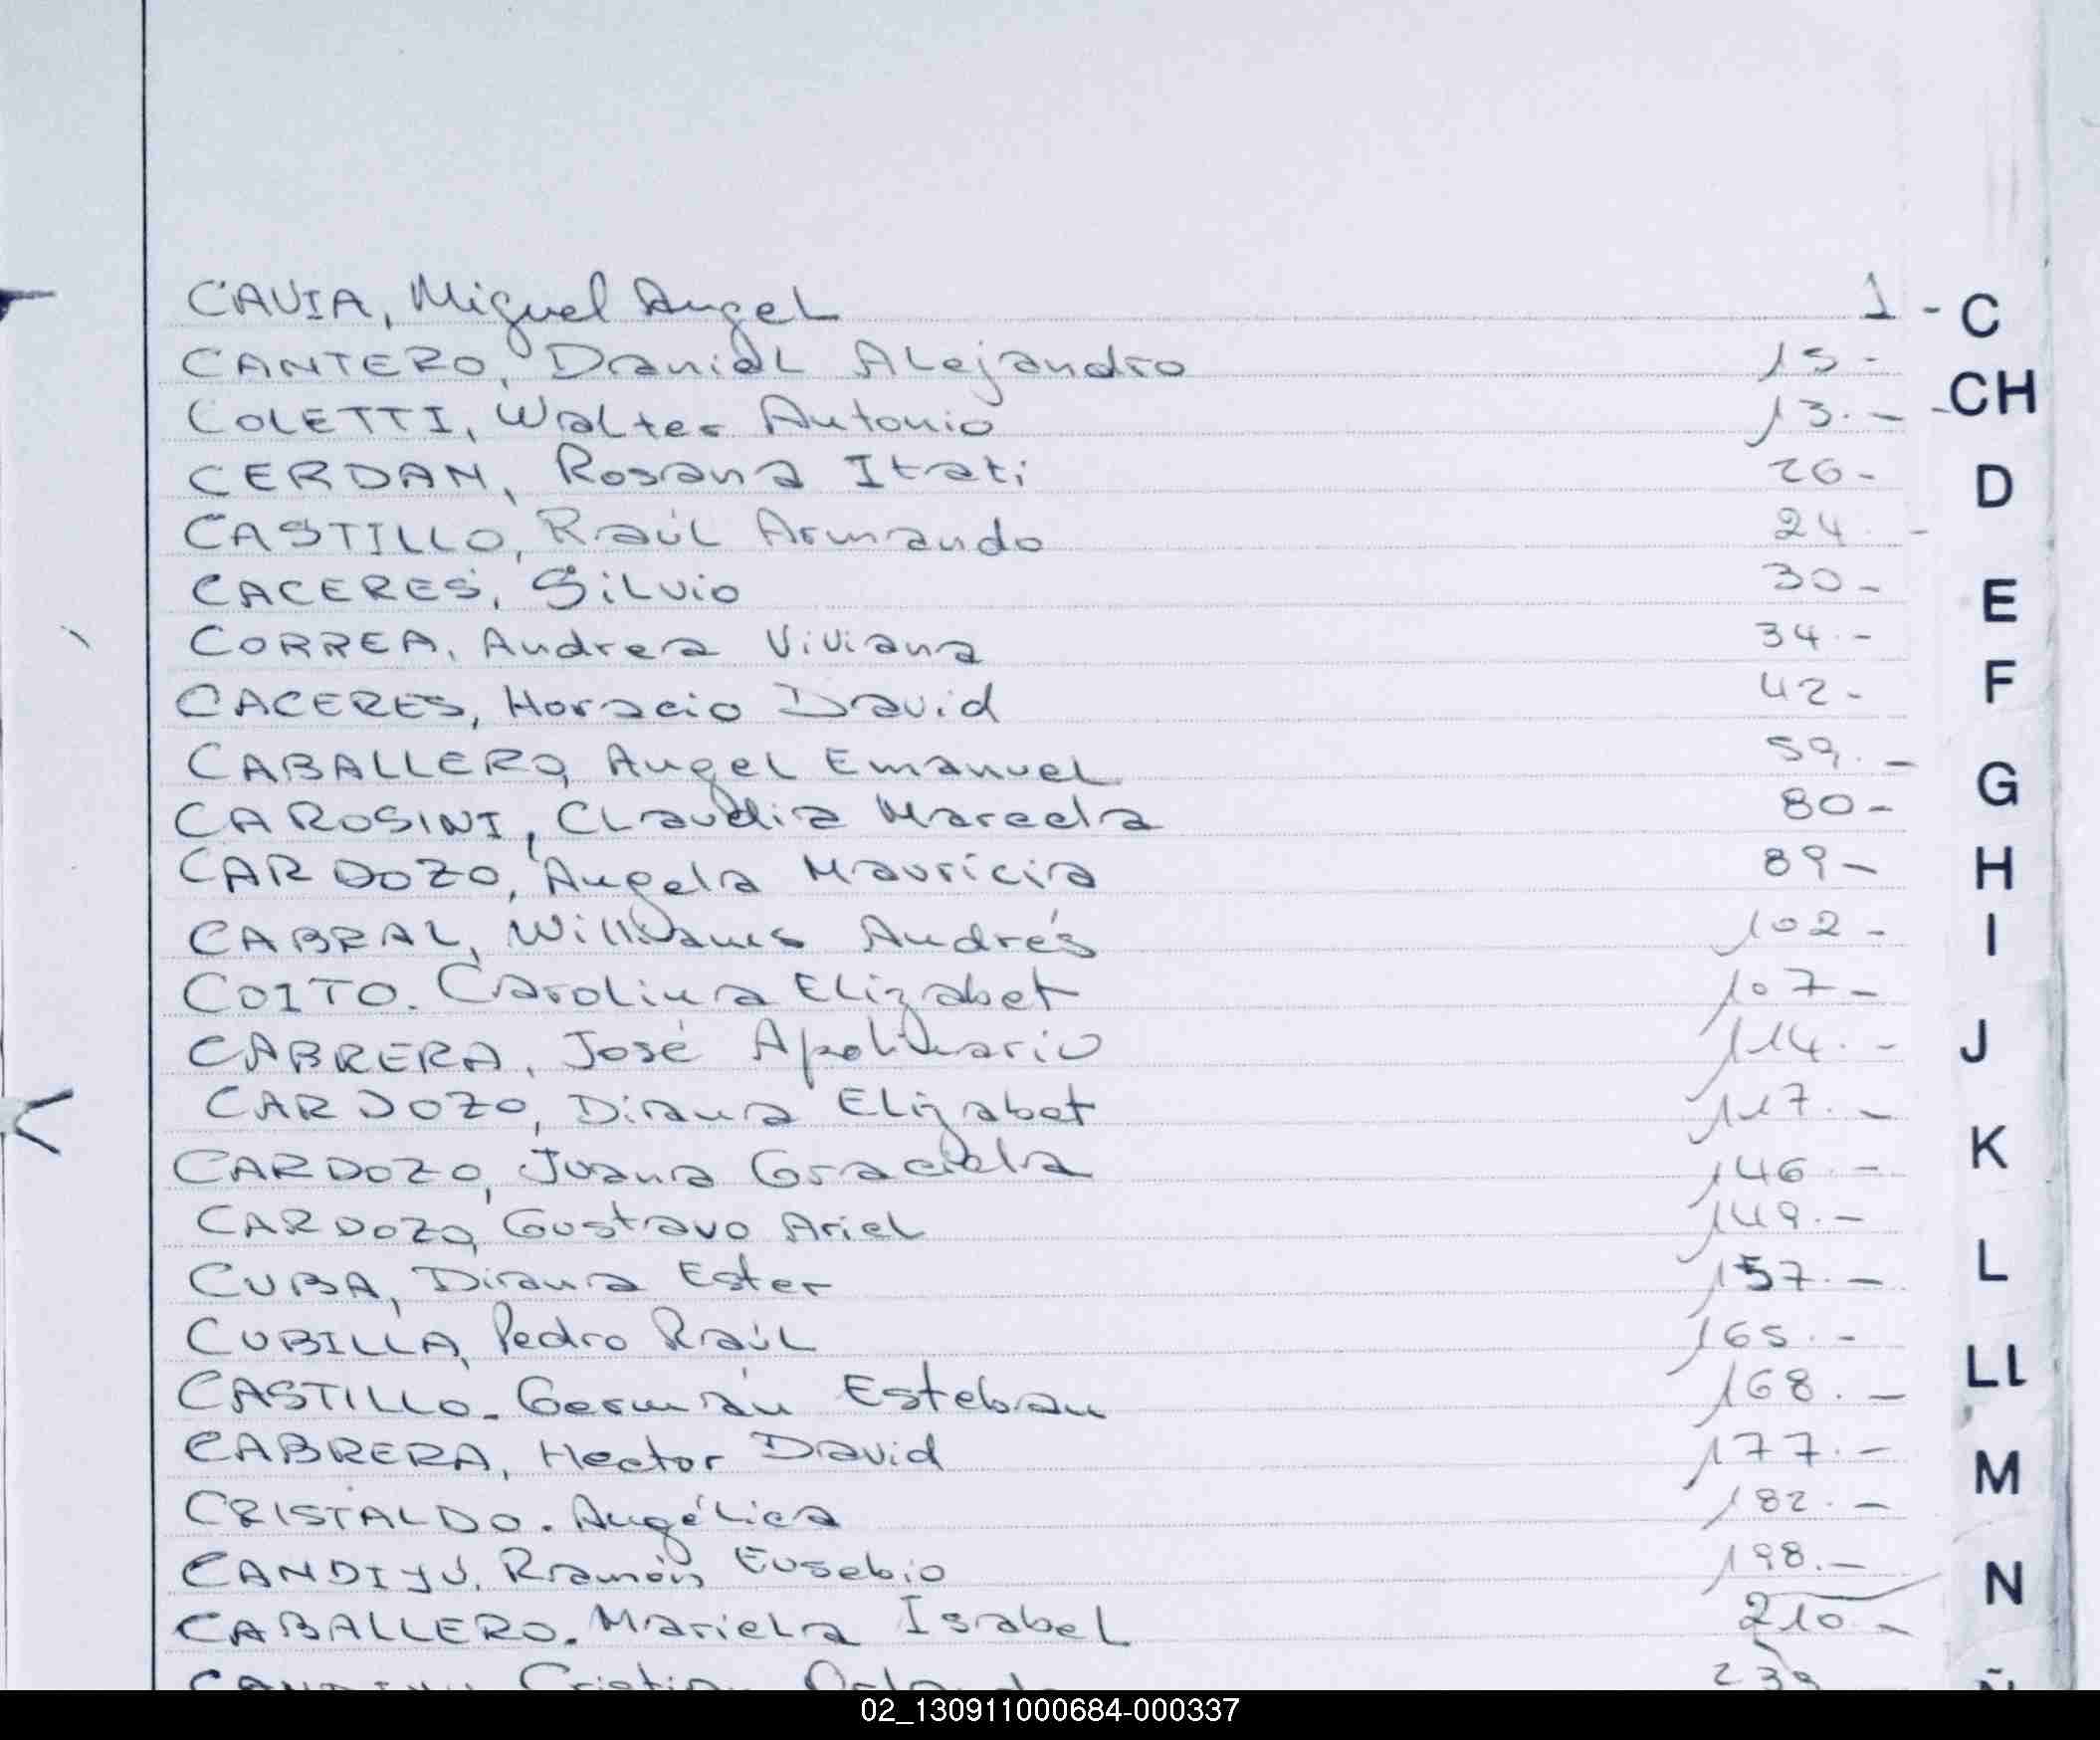 CAVIA, Miguel Angel 1 - C
CANTERO, Daniel Alejandro 15 -
CH
COLETTI, Walter Antonio 13. -
CERDAN, Rosana Itati 26 - D
CASTILLO, Raúl Armando 24. -
CACERES, Silvio 30 - E
CORREA, Andrea Viviana 34. -
CACERES, Horacio David 42 - F
CABALLERO, Angel Emanuel 59. -
G
CAROSINI, Claudia Marcela 80 -
CARDOZO, Angela Mauricia 89 - H
CABRAL, Williams Andrés 102 - I
COITO. Carolina Elizabet 107 -
CABRERA, José Apolinario 114. - J
CARDOZO, Diana Elizabet 117. -
CARDOZO, Juana Graciela 146 - K
CARDOZO, Gustavo Ariel 149. -
CUBA, Diana Ester 157. - L
CUBILLA, Pedro Raúl 165. -
CASTILLO. Germán Esteban 168. - Ll
CABRERA, Hector David 177. -
M
CRISTALDO. Angélica 182. -
CANDIYÚ, Ramón Eusebio 198. - N
CABALLERO. Mariela Isabel 210. -
Cristian 239 Ñ
02_130911000684-000337